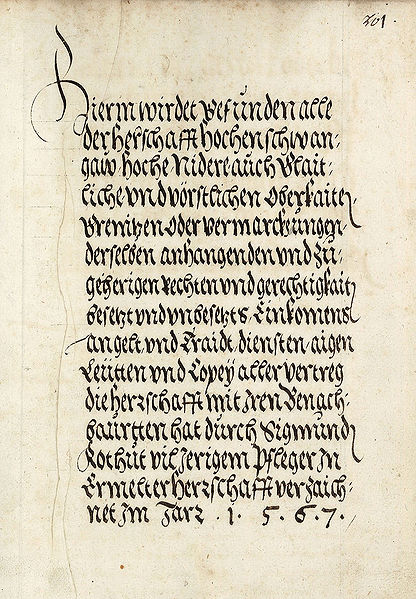 201.
Hierin wirdet befunden alle
der Herschafft Hochenschwan-
gaw hoche Nidere auch Glait-
liche vnd vörstlichen Oberkaiten
Grenitzen oder vermarckhungen
derselben anhangenden vnd zu-
geherigen Rechten vnd gerechtigkait
besetzt vnd vnbesetzts Einkomens
an gelt vnd Traidt, diensten aigen
Leütten vnd Copey aller vertreg
die Herrschafft mit Iren Benach-
baurtten hat durch Sigmund
vil Jerigem Pfleger In
Ermelter Herrschafft verzaich-
net Im Jarr . 1 . 5 . 6 . 7 .